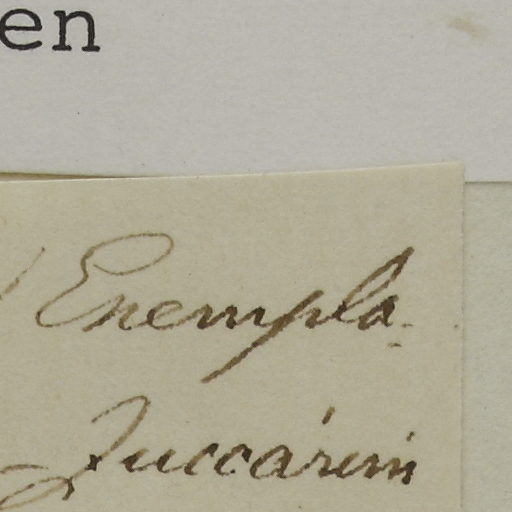 en
Exempla.
Zuccarini